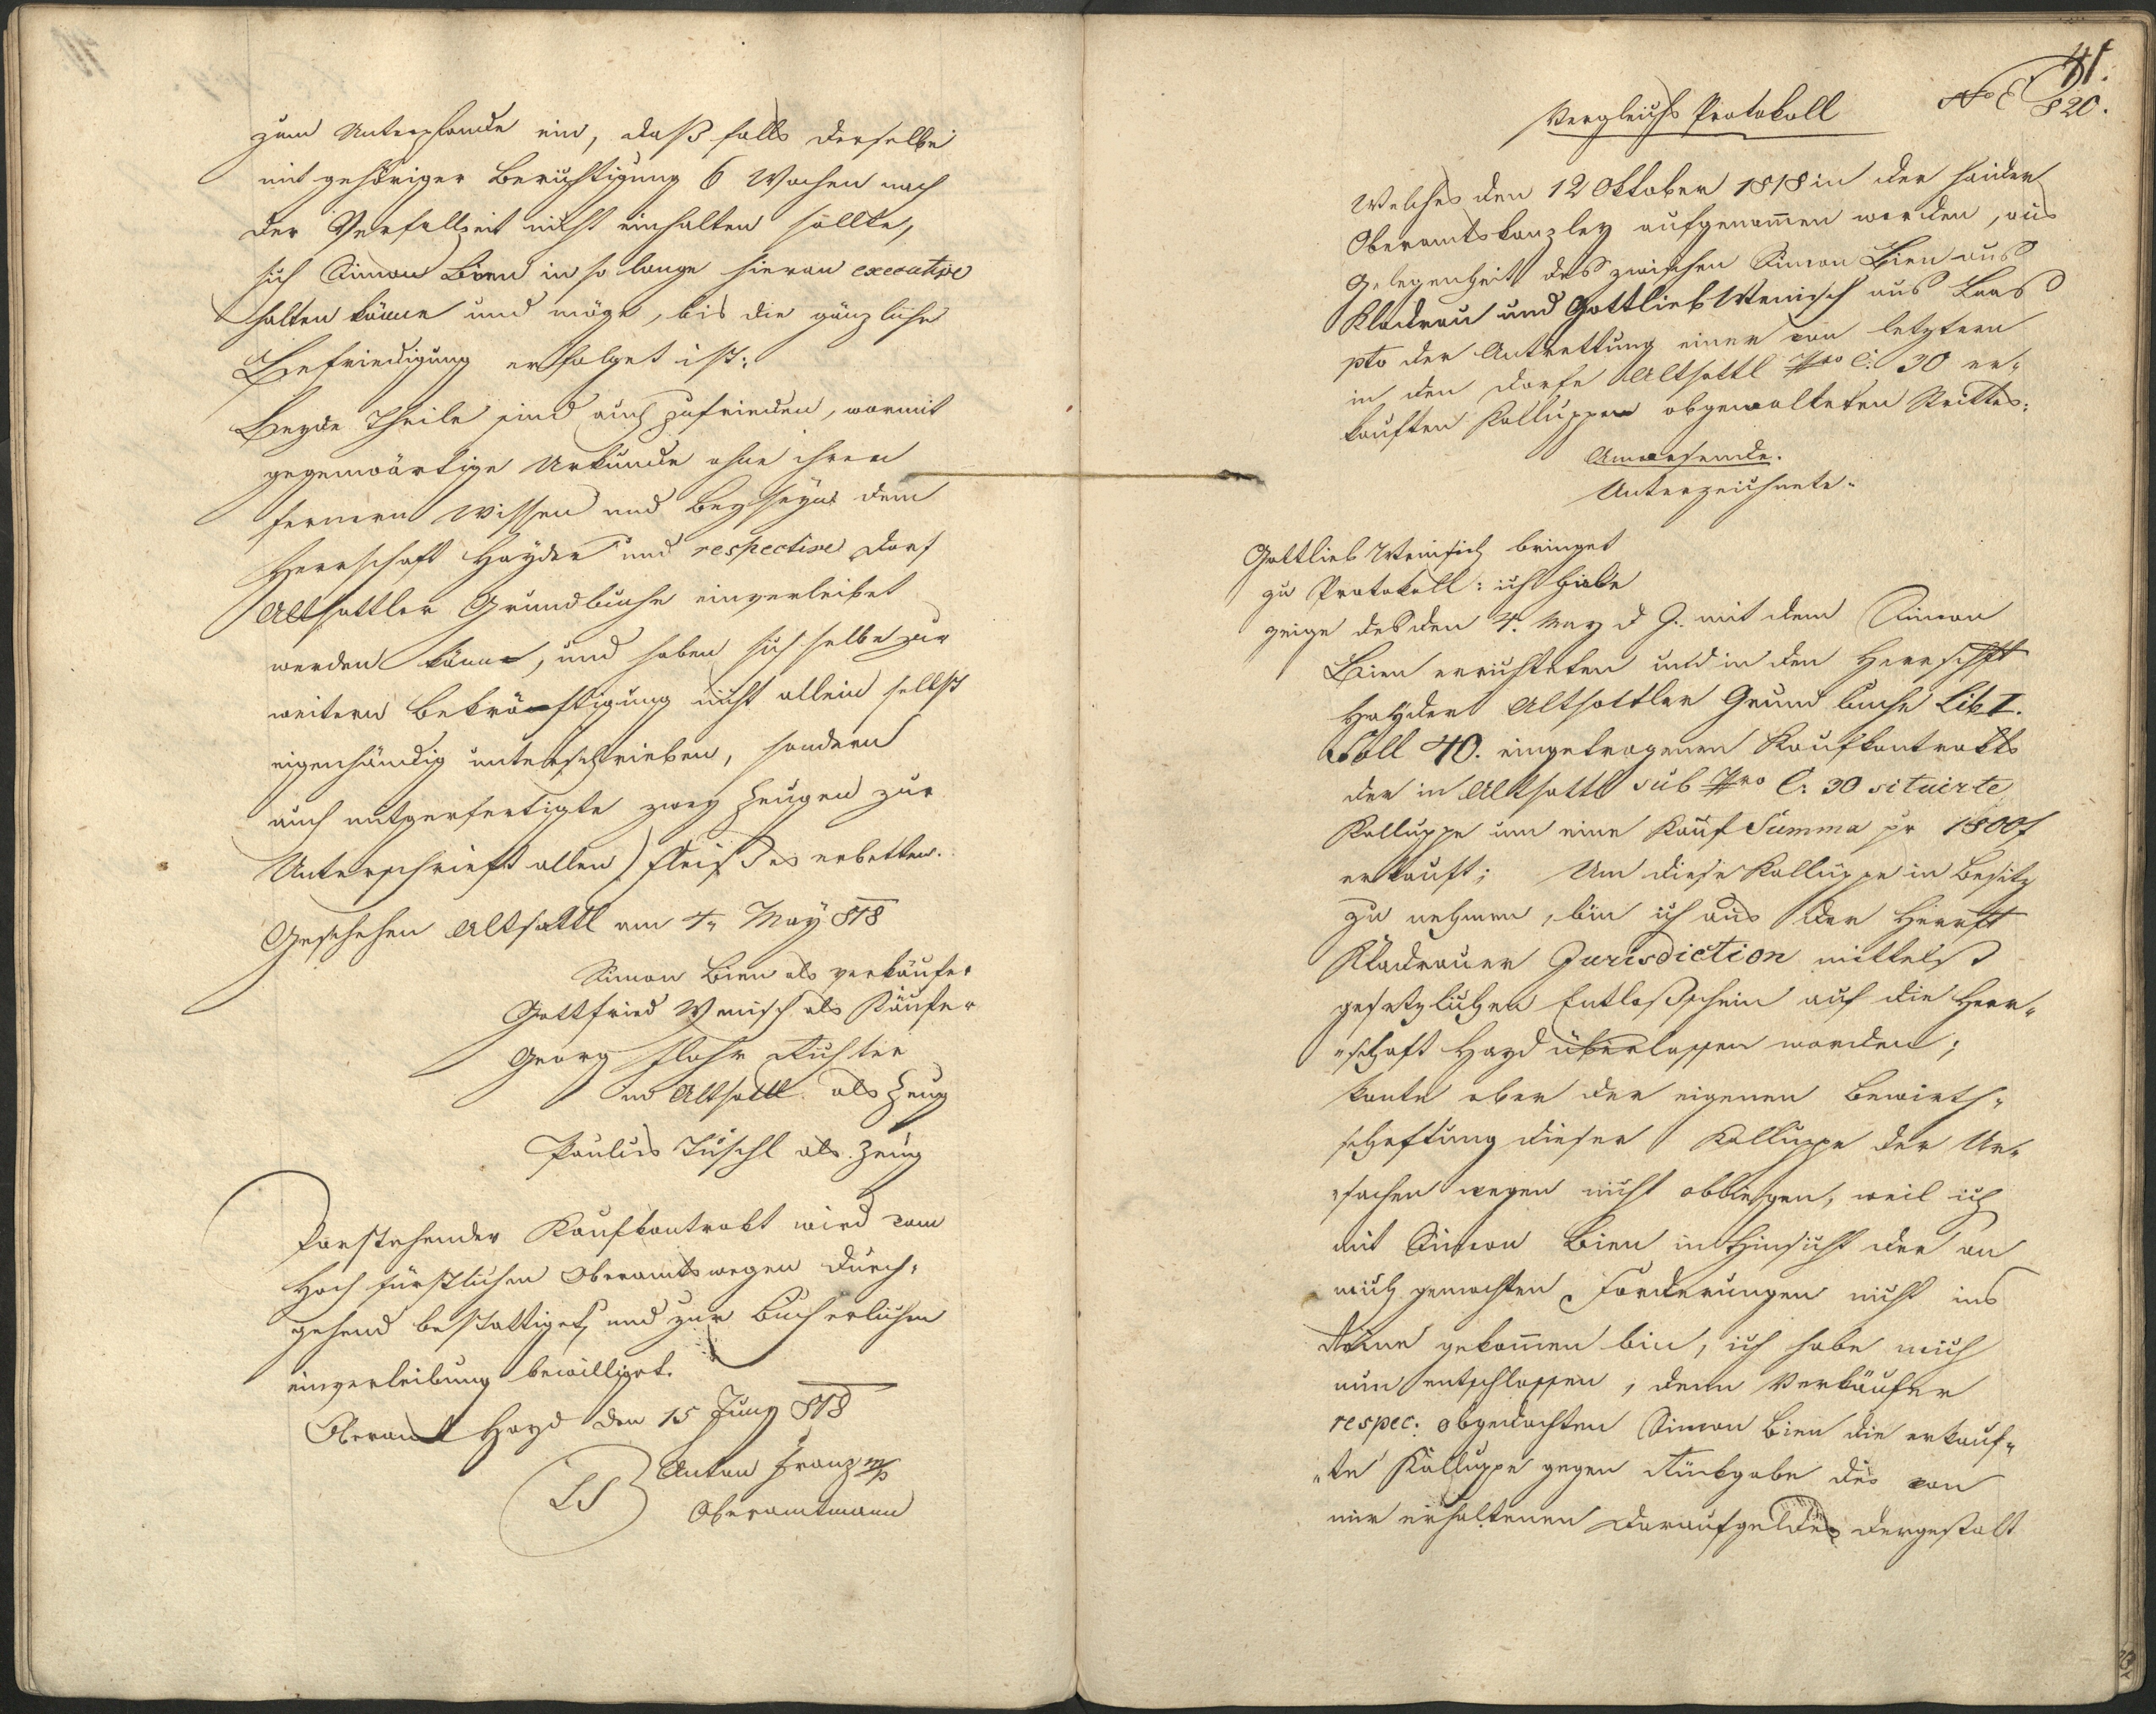 zum Unterpfande ein, daß falls derselbe
mit gehöriger Berichtigung 6 Wochen nach
der Verfallzeit nicht einhalten sollte,
sich Simon Bien in so lange hieran executive
halten könne und möge, bis die gänzliche
Befriedigung erfolget ist:
Beyde Theile sind auch zufrieden, womit
gegenwärtige Urkunde ohne ihren
fernern Wissen und Beyseyns dem
Herrschaft Hayder und respective Dorf
Altsattler Grundbuche einverleibet
werden könne, und haben sich selbe zur
weitern Bekräftigung nicht allein selbst
eigenhändig unterschrieben, sondern
auch mitgefertigte zwey Zeugen zur
Unterschrieft allen Fleißes erbetten.
Geschehen Altsattl am 4n May 818
Simon Bien als verkäufer
Gottfried Wenisch als Käufer
Georg Flohr Richter
in Altsattl als Zeug
Paulus Tüschl als Zeug
Vorstehender Kaufkontrakt wird vom
Hochfürstlichen Oberamtswegen durch-
gehend bestattiget, und zur Bücherlichen
einverleibung bewilliget.
Oberamt Hayd den 15 Juny 818
LS Anton Franz m/p
Oberamtmann
41.
No E 820.
Vergleichs Protokoll
Welches den 12 Oktober 1818 in der Haider
Oberamtskanzley aufgenom̄en worden, aus
Gelegenheit des zwischen Simon Bien aus
Kladrau und Gottlieb Wenisch aus Laas
pto der Abtrettung einer von letztern
in den Dorfe Altsattl Nro C: 30 er-
kauften Kalluppen obgewalteten Strittes:
Anwesende.
Unterzeichnete.
Gottlieb Wenisch bringet
zu Protokoll: ich habe
zeige des den 4. May d J. mit dem Simon
Bien errichteten und in den Herrschft
Hayder Altsattler Grundbuche Lib I.
Foll 40. eingetragenen Kaufkontrakts
der in Altsattl sub Nro C: 30 situirte
Kalluppe um eine Kauf Summa pr 1800f
erkauft; Um diese Kalluppe in Besitz
zu nehmen, bin ich aus der Herrft
Kladrauer Jurisdiction mittelst
gesetzlichen Entlaßschein auf die Herr-
schaft Hayd überlassen worden;
konnte aber der eigenen Bewirth-
schaftung dieser Kalluppe der Ur-
sachen wegen nicht obliegen, weil ich
mit Simon Bien in Hinsicht der an
mich gemachten Forderungen nicht ins
Reine gekom̄en bin, ich habe mich
nun entschlossen, denn Verkäufer
respec: obgedachten Simon Bien die erkauf-
te Kalluppe gegen Rückgabe des von
mir erhaltenen Daraufgeldes dergestalt